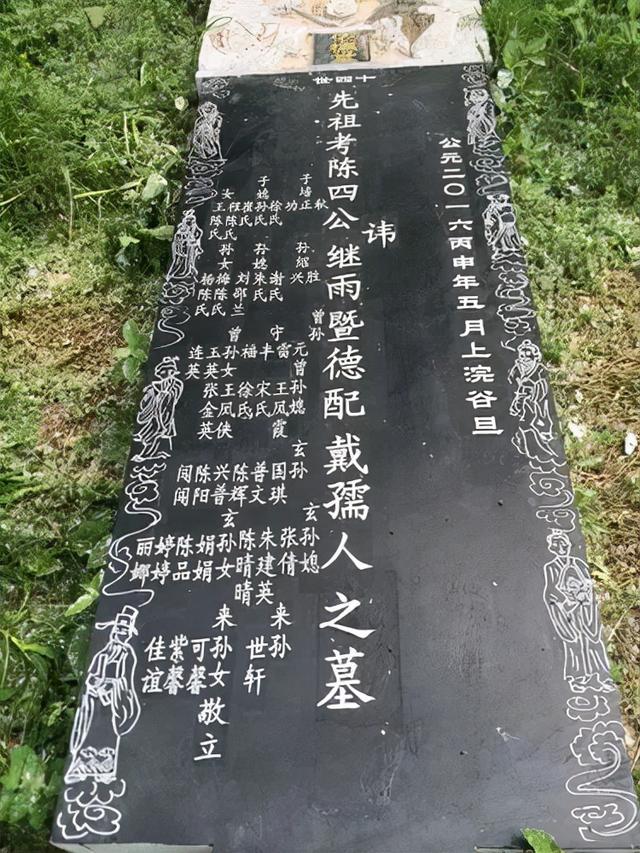 十四世
公元二〇一六丙申年五月上浣谷旦
讳
先祖考陈四公继雨暨德配戴孺人之墓
子培正
秋
功
子媳徐氏
孙氏
崔氏
女汪陈氏
王陈氏
孙绍兴
胜
孙媳谢氏
朱氏
刘邵兰
孙女梅陈氏
杨陈氏
曾孙
元
雷
守丰
福
曾孙媳王凤霞
宋氏
徐氏
王凤侠
张金英
曾孙女
玉英
连英
玄孙国琪
普文
陈辉
兴普
陈阳
玄孙媳张倩
朱建英
玄孙女陈晴晴
娟娟
陈品
婷婷
来孙世轩
来孙女可馨
紫馨
佳谊
敬立